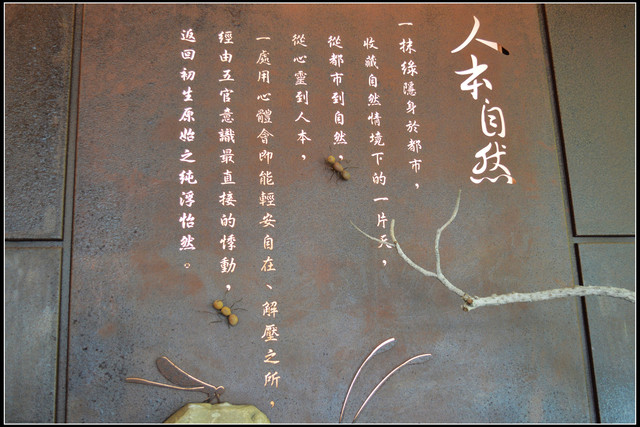 人本自然
一抹綠隱身於都市，
收藏自然情境下的一片天，
從都市到自然，
從心靈到人本，
一處用心體會即能輕安自在、解壓之所，
經由五官意識最直接的悸動，
返回初生原始之純淨怡然。